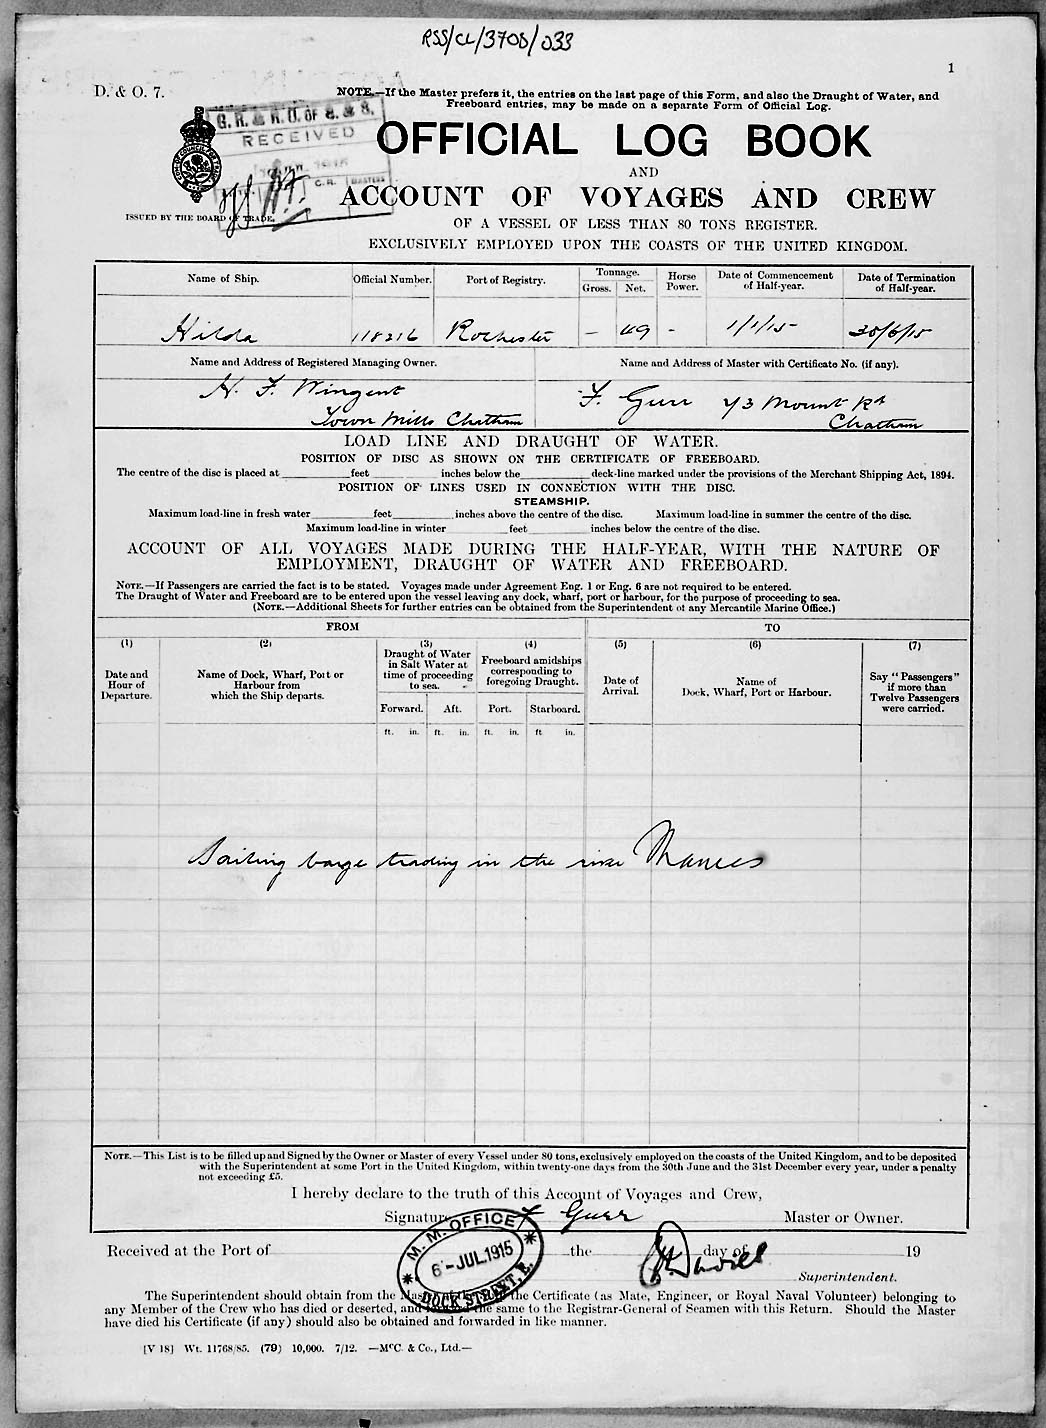 RSS/CL/3705/033
1
D. & O. 7.
NOTE.—If the Master prefers it, the entries on the last page of this Form, and also the Draught of Water, and
Freeboard entries, may be made on a separate Form of Official Log.
G. R. & R. O. OF S. & S.
RECEIVED
C. R.
MASTERS
OFFICIAL LOG BOOK
AND
ACCOUNT OF VOYAGES AND CREW
ISSUED BY THE BOARD OF TRADE.
OF A VESSEL OF LESS THAN 80 TONS REGISTER.
EXCLUSIVELY EMPLOYED UPON THE COASTS OF THE UNITED KINGDOM.
Name of Ship. Official Number. Port of Registry. Tonnage. Gross. Net. Horse Power. Date of Commencement of Half-year. Date of Termination of Half-year.
Hilda 118216 Rochester – 49 – 1/1/15 30/6/15
Name and Address of Registered Managing Owner. Name and Address of Master with Certificate No. (if any).
H. F. Wingent F. Gurr 73 Mount Rd
Town Mills Chatham Chatham
LOAD LINE AND DRAUGHT OF WATER.
POSITION OF DISC AS SHOWN ON THE CERTIFICATE OF FREEBOARD.
The centre of the disc is placed at feet inches below the deck-line marked under the provisions of the Merchant Shipping Act, 1894.
POSITION OF LINES USED IN CONNECTION WITH THE DISC.
STEAMSHIP.
Maximum load-line in fresh water feet inches above the centre of the disc. Maximum load-line in summer the centre of the disc.
Maximum load-line in winter feet inches below the centre of the disc.
ACCOUNT OF ALL VOYAGES MADE DURING THE HALF-YEAR, WITH THE NATURE OF
EMPLOYMENT, DRAUGHT OF WATER AND FREEBOARD.
NOTE.—If Passengers are carried the fact is to be stated. Voyages made under Agreement Eng. 1 or Eng. 6 are not required to be entered.
The Draught of Water and Freeboard are to be entered upon the vessel leaving any dock, wharf, port or harbour, for the purpose of proceeding to sea.
(NOTE.—Additional Sheets for further entries can be obtained from the Superintendent of any Mercantile Marine Office.)
FROM TO
(1) (2) (3) (4) (5) (6) (7)
Date and Hour of Departure.
Name of Dock, Wharf, Port or Harbour from which the Ship departs.
Draught of Water in Salt Water at time of proceeding to sea.
Freeboard amidships corresponding to foregoing Draught.
Date of Arrival.
Name of Dock, Wharf, Port or Harbour.
Say "Passengers" if more than Twelve Passengers were carried.
Forward. Aft. Port. Starboard.
ft. in. ft. in. ft. in. ft in.
Sailing barge trading in the river Thames
NOTE.—This List is to be filled up and Signed by the Owner or Master of every Vessel under 80 tons, exclusively employed on the coasts of the United Kingdom, and to be deposited
with the Superintendent at some Port in the United Kingdom, within twenty-one days from the 30th June and the 31st December every year, under a penalty
not exceeding £5.
I hereby declare to the truth of this Account of Voyages and Crew,
Signature F Gurr Master or Owner.
M. M. OFFICE
6 - JUL. 1915
DOCK STREET, E.
Received at the Port of the day of 19
Davies
Superintendent.
The Superintendent should obtain from the Mas the Certificate (as Mate, Engineer, or Royal Naval Volunteer) belonging to
any Member of the Crew who has died or deserted, and the same to the Registrar-General of Seamen with this Return. Should the Master
have died his Certificate (if any) should also be obtained and forwarded in like manner.
[V 18] Wt. 11768/85. (79) 10,000. 7/12. —McC. & Co., Ltd.—